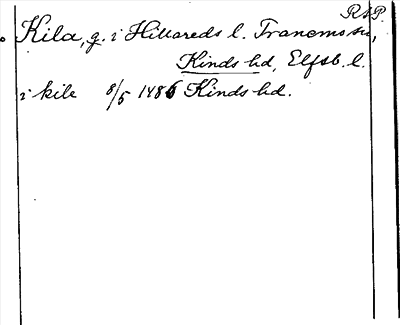 RAP.
Kila, g. i Hillareds l. Tranemo sn,
Kinds hd, Elfsb. l.
i kile 8/5 1486 Kinds hd.